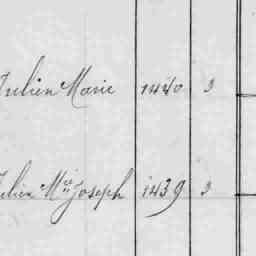 Julien Marie 1440 3
Julien Mie Joseph 1439 3